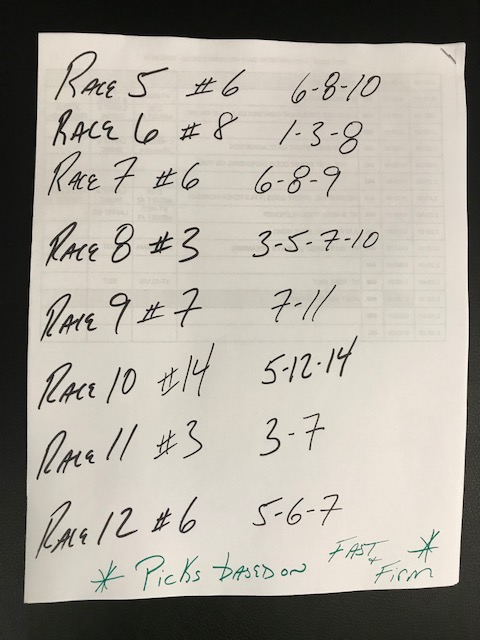 RACE 5 #6 6-8-10
RACE 6 #8 1-3-8
RACE 7 #6 6-8-9
RACE 8 #3 3-5-7-10
RACE 9 #7 7-11
RACE 10 #14 5-12-14
RACE 11 #3 3-7
RACE 12 #6 5-6-7
* Picks BASED ON FAST + Firm *